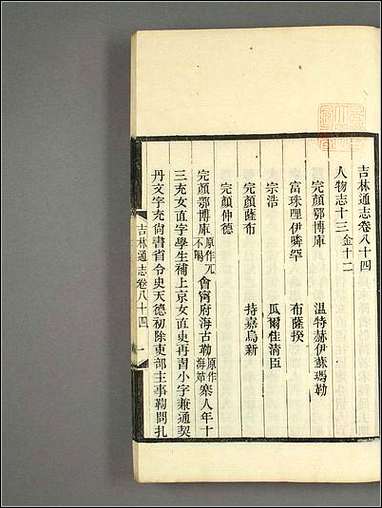 吉林通志卷八十四
人物志十三 金十二
完顏鄂博庫 温特赫伊蘇瑪勒
富珠哩伊嚕罕 布薩揆
宗浩 瓜爾佳清臣
完顏薩布 持嘉烏新
完顏仲德
完顏鄂博庫原作兀不喝會甯府海古勒原作海姑寨人年十
三充女直字學生補上京女直吏再習小字兼通契
丹文字充尚書省令史天德初除吏部主事勒問扎
吉林通志卷八十四 一